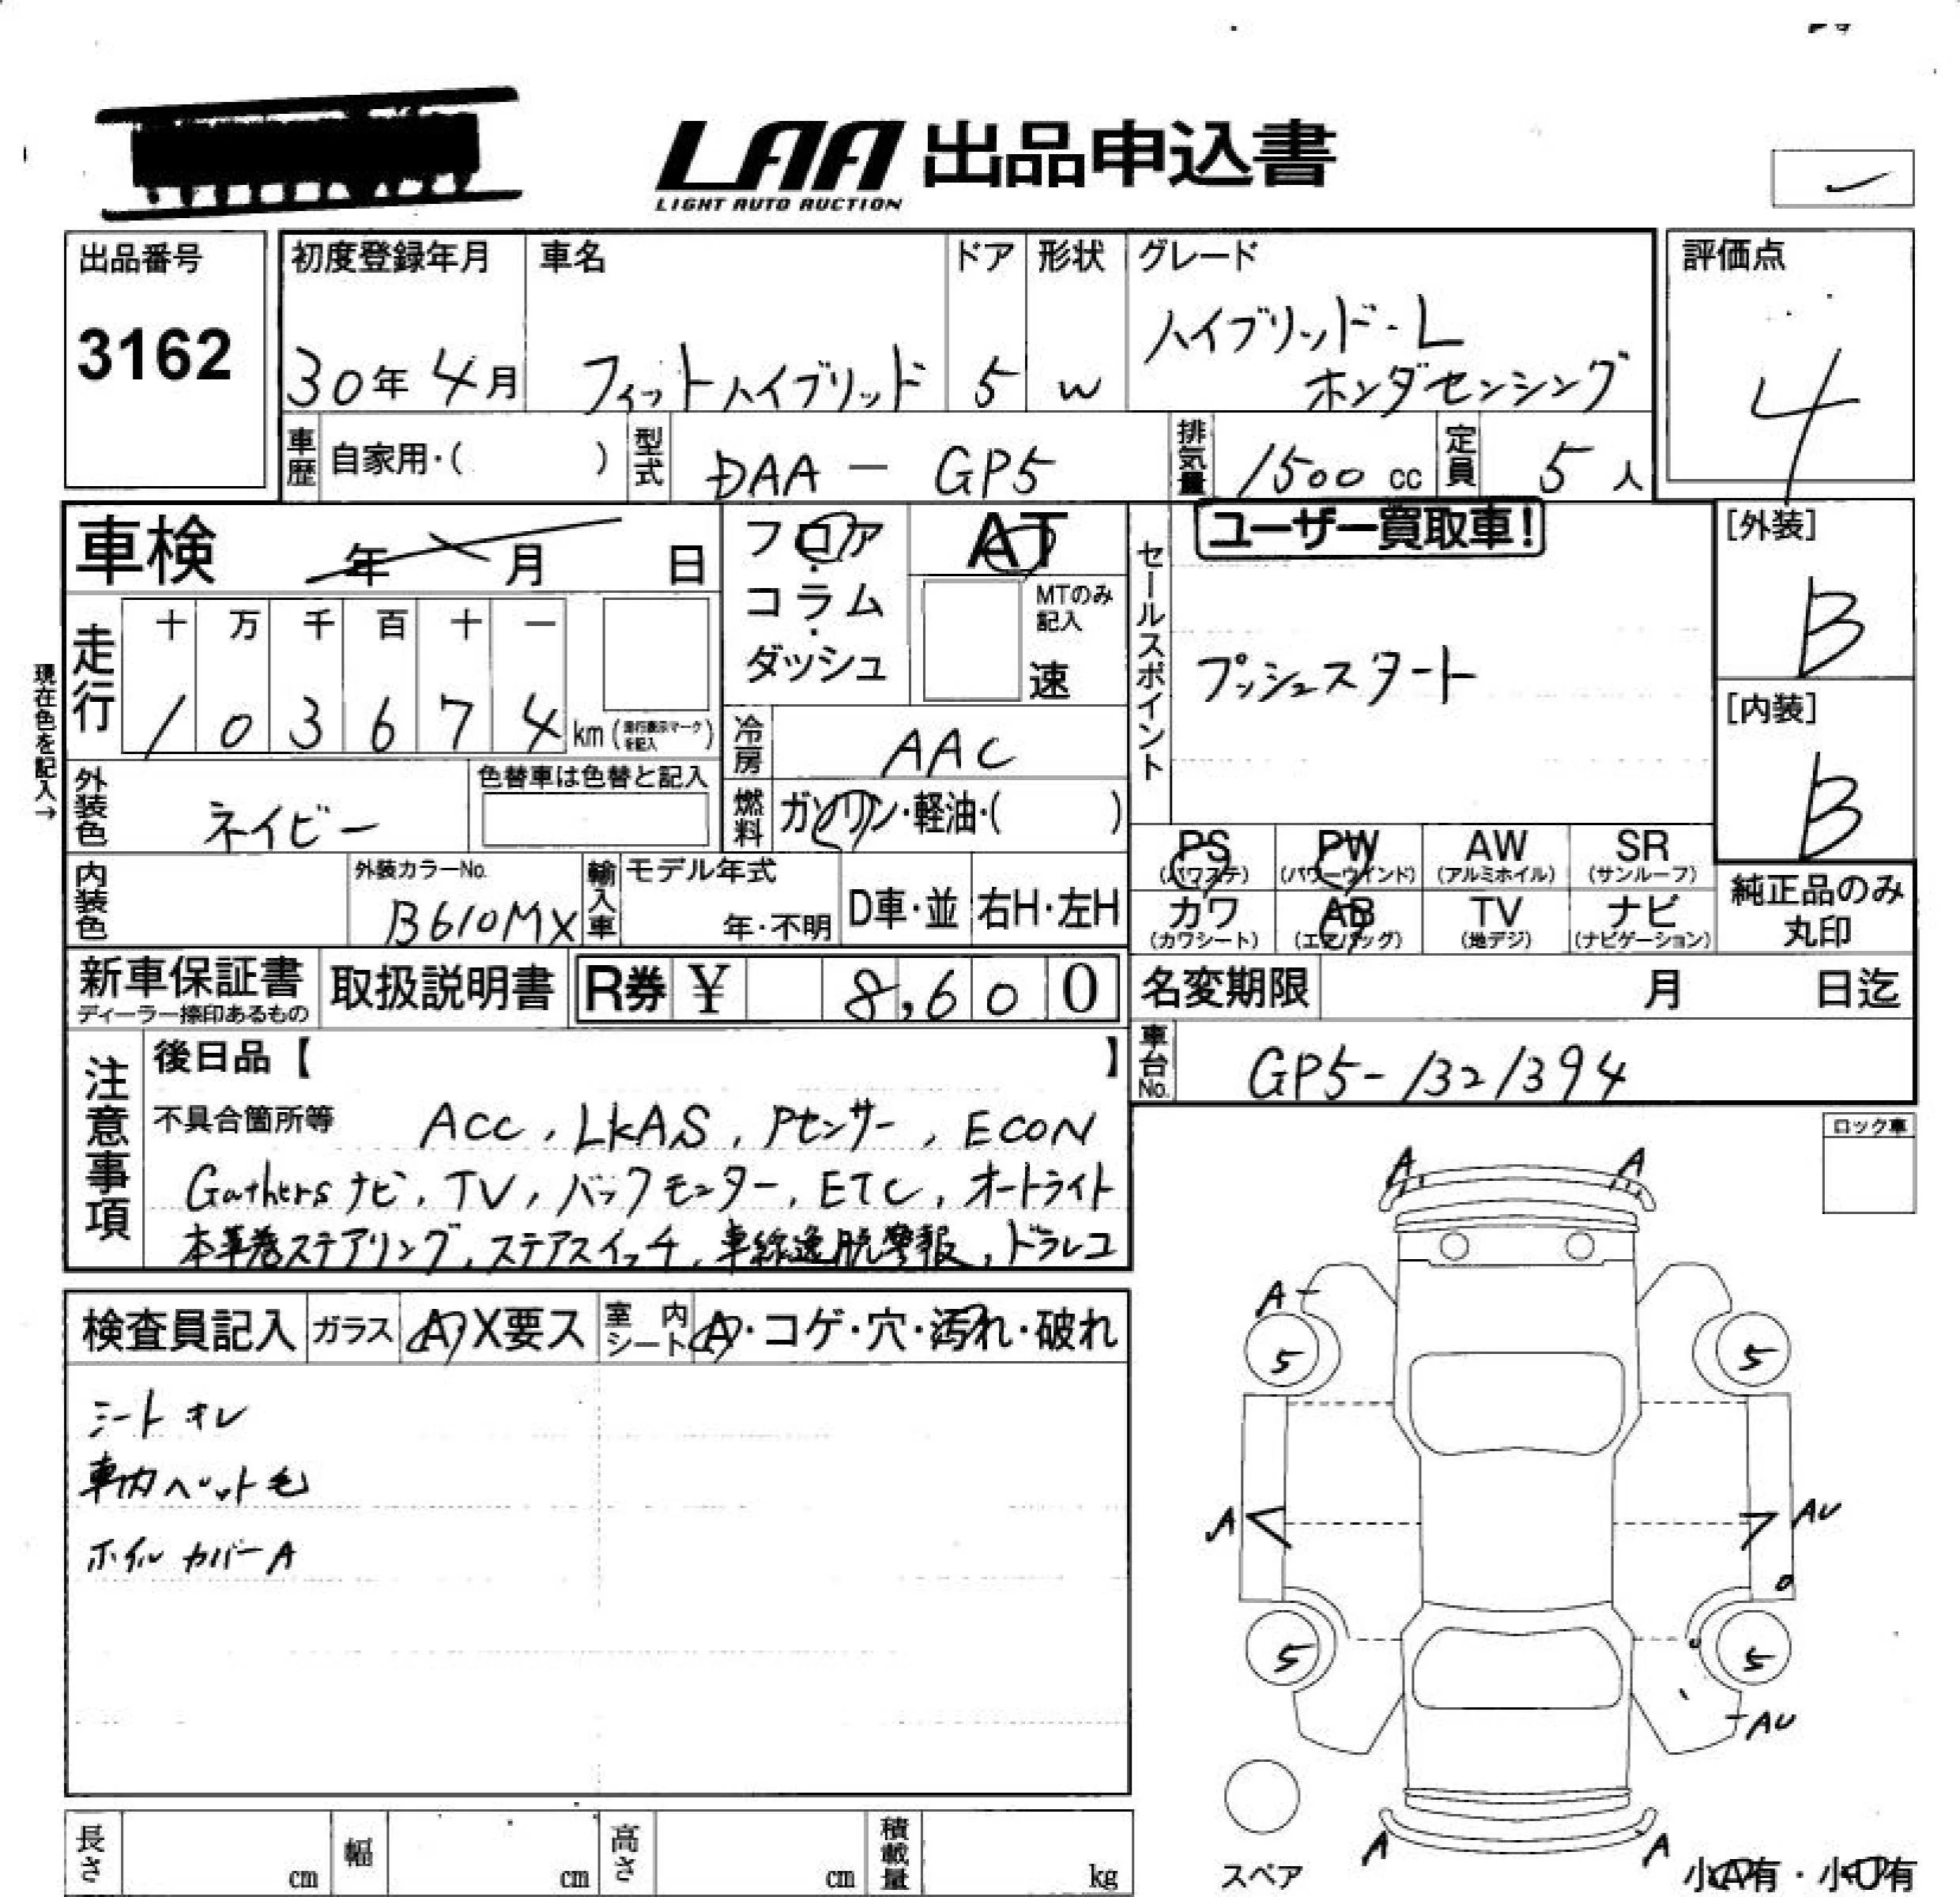 LAA 出品申込書
LIGHT AUTO AUCTION
出品番号
3162
初度登録年月
30年 4月
車名
フィットハイブリッド
ドア
5
形状
W
グレード
ハイブリッド・L
ホンダセンシング
評価点
4
車歴 自家用・( )
型式 DAA - GP5
排気量 1500 cc
定員 5 人
車検 年 月 日
フロア・コラム・ダッシュ
AT
MTのみ記入
速
セールスポイント
ユーザー買取車!
プッシュスタート
[外装]
B
[内装]
B
現在色を記入→
走行
十 万 千 百 十 一
1 0 3 6 7 4 km (走行表示マークを記入)
冷房 AAC
外装色 ネイビー
色替車は色替と記入
燃料 ガソリン・軽油・( )
内装色
外装カラーNo.
B610MX
輸入車
モデル年式
年・不明
D車・並
右H・左H
PS (パワステ)
PW (パワーウインド)
AW (アルミホイル)
SR (サンルーフ)
カワ (カワシート)
AB (エアバッグ)
TV (地デジ)
ナビ (ナビゲーション)
純正品のみ丸印
新車保証書
ディーラー捺印あるもの
取扱説明書
R券 ¥ 8,600
名変期限 月 日迄
車台No. GP5-1321394
注意事項
後日品【 】
不具合箇所等 ACC, LKAS, Pセンサー, ECON
Gathersナビ, TV, バックモニター, ETC, オートライト
本革巻ステアリング, ステアスイッチ, 車線逸脱警報, ドラレコ
ロック車
検査員記入 ガラス A X要ス 室内シート A・コゲ・穴・汚れ・破れ
シートオレ
車内ペット毛
ホイルカバーA
A A
A
5 5
A AU
5 5
AU
A A
スペア
小A有・小U有
長さ cm
幅 cm
高さ cm
積載量 kg